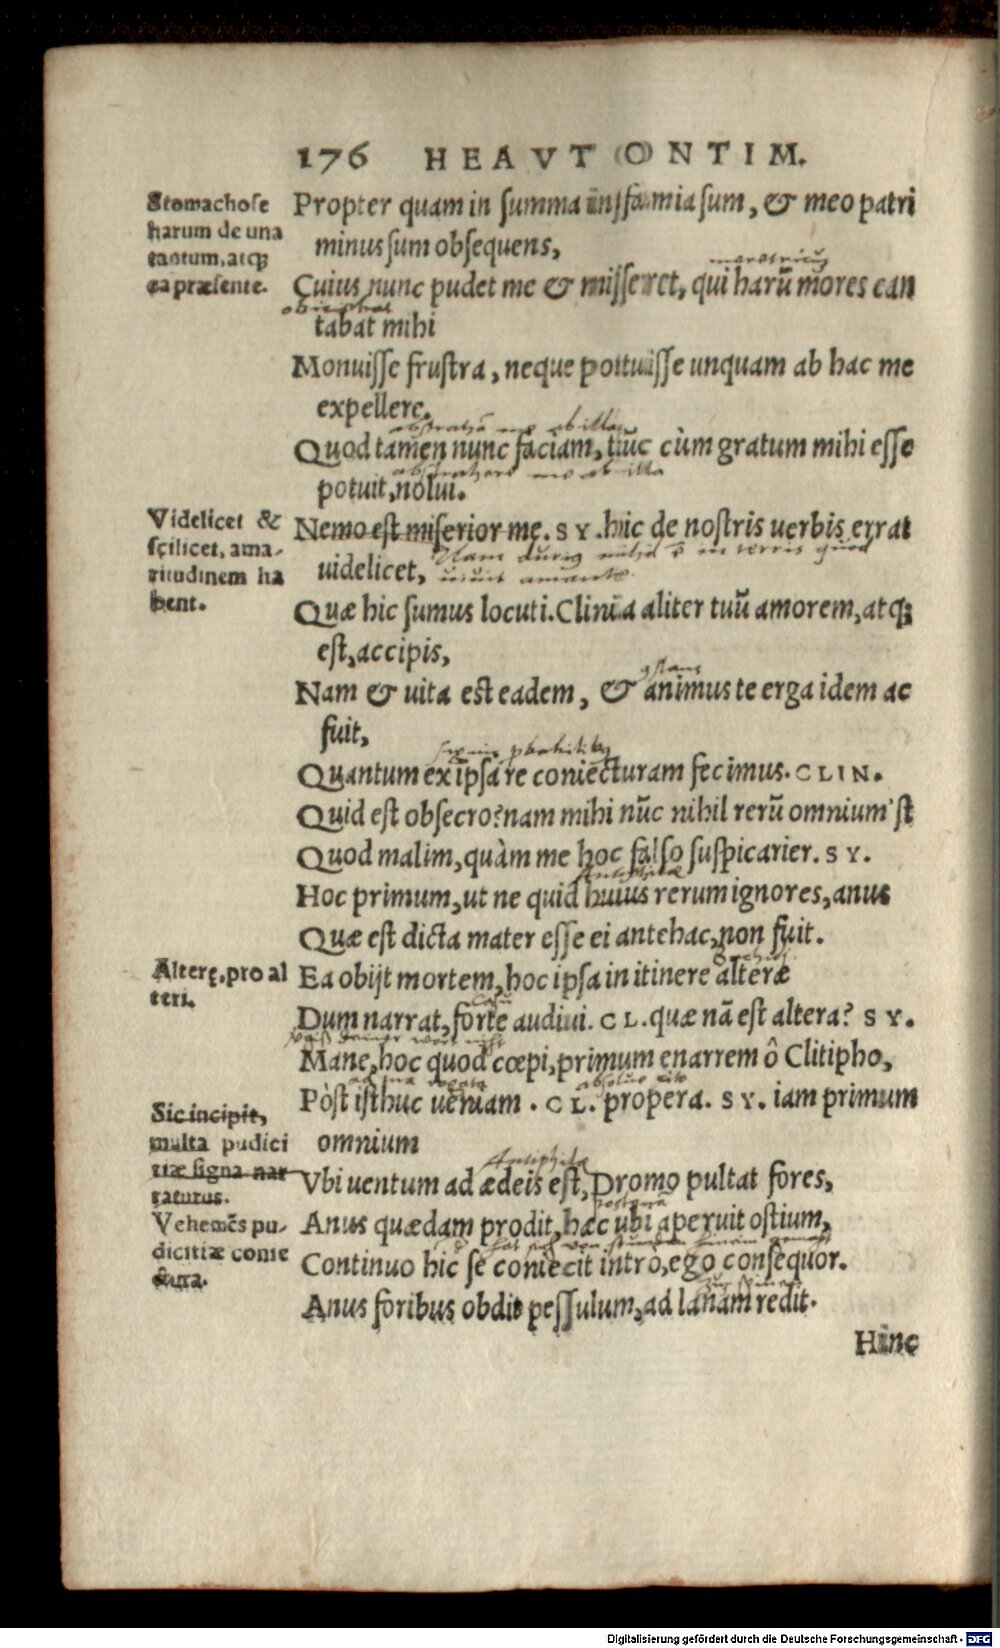 176 HEAVTONTIM.
Stomachose
harum de una
tantum, atq;
ea præsente.
Propter quam in summa infamia sum, & meo patri
minus sum obsequens,
meretricū
Cuius nunc pudet me & misseret, qui harū mores can
tabat mihi
Monuisse frustra, neque potuisse unquam ab hac me
expellere.
ab illa
Quod tamen nunc faciam, tūc cùm gratum mihi esse
abstrahere me ab illa
potuit, nolui.
Videlicet &
scilicet, ama-
ritudinem ha
bent.
Nemo est miserior me. SY. hic de nostris uerbis errat
Nam durius nihil ē in terris quod
uidelicet,
uiuit amante.
Quæ hic sumus locuti. Clinia aliter tuū amorem, atq;
est, accipis,
Nam & uita est eadem, & animus te erga idem ac
fuit,
Quantum ex ipsa re coniecturam fecimus. CLIN.
Quid est obsecro? nam mihi nūc nihil rerū omnium'st
Quod malim, quàm me hoc falso suspicarier. SY.
Antiphilæ
Hoc primum, ut ne quid huius rerum ignores, anus
Quæ est dicta mater esse ei antehac, non fuit.
Alterę, pro al
teri.
Ea obijt mortem, hoc ipsa in itinere alteræ
casu
Dum narrat, forte audiui. CL. quæ nā est altera? SY.
Mane, hoc quod cœpi, primum enarrem ô Clitipho,
Pòst isthuc ueniam. CL. propera. SY. iam primum
omnium
Sic incipit,
multa pudici
tiæ signa nar
raturus.
Vehemēs pu-
dicitiæ conie
ctura.
Antiphilæ
Vbi uentum ad ædeis est, Dromo pultat fores,
Anus quædam prodit, hæc ubi aperuit ostium,
Continuo hic se coniecit intro, ego consequor.
Anus foribus obdit pessulum, ad lanam redit.
Hinc
Digitalisierung gefördert durch die Deutsche Forschungsgemeinschaft - DFG